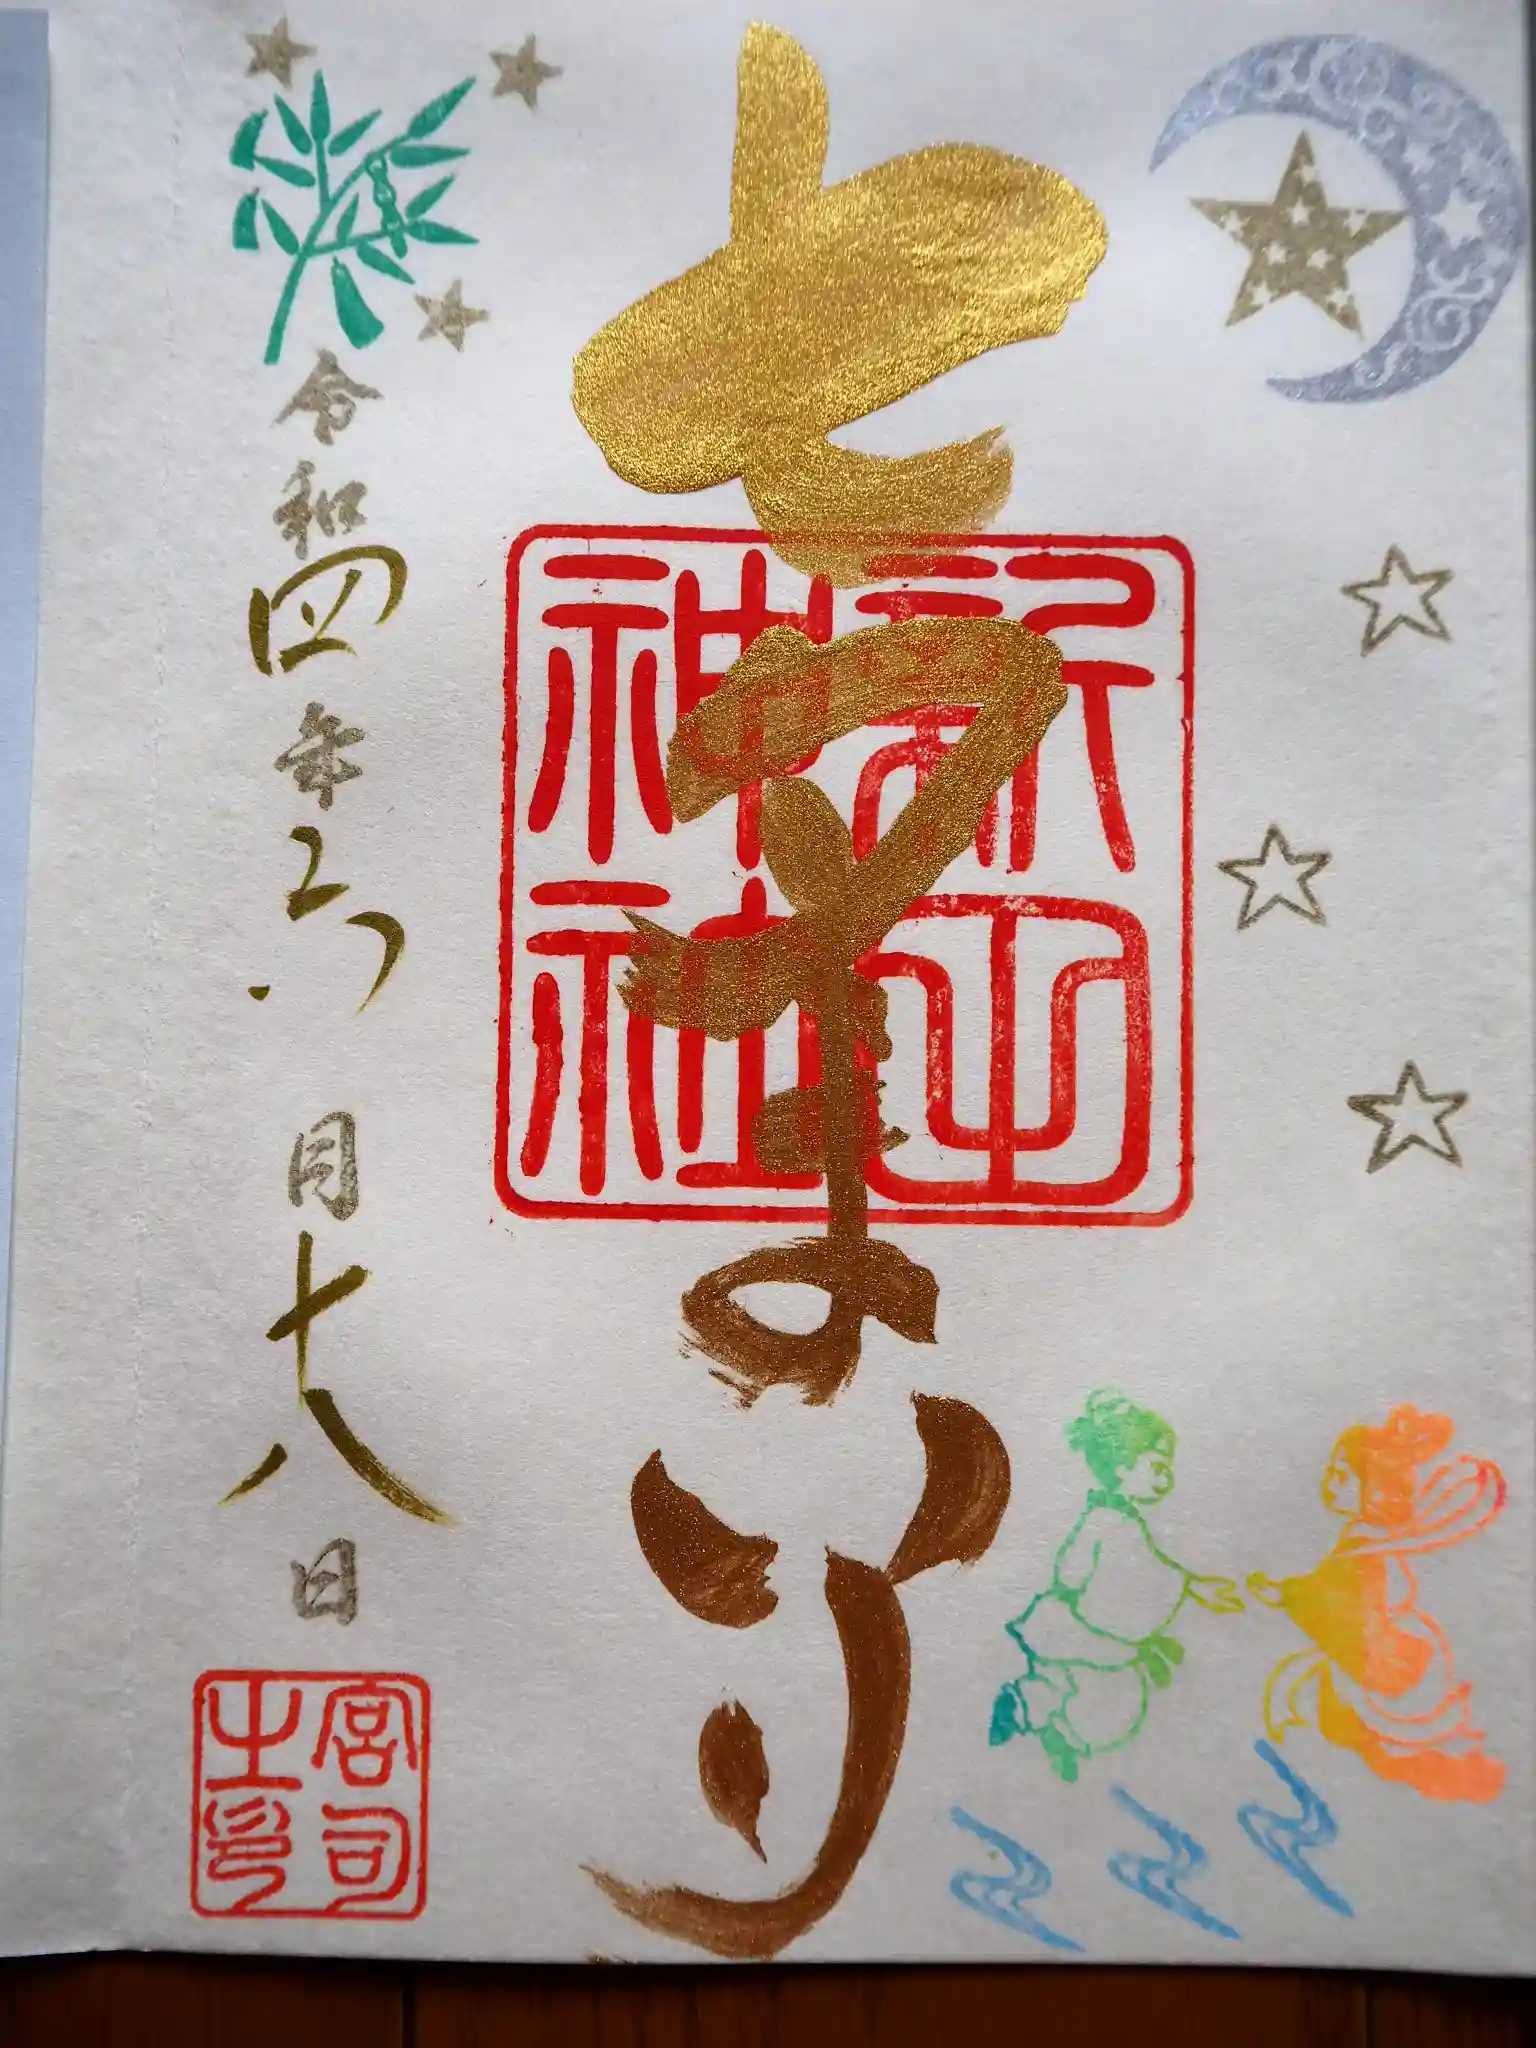 七夕まつり
神社
令和四年六月十八日
宮司
之印